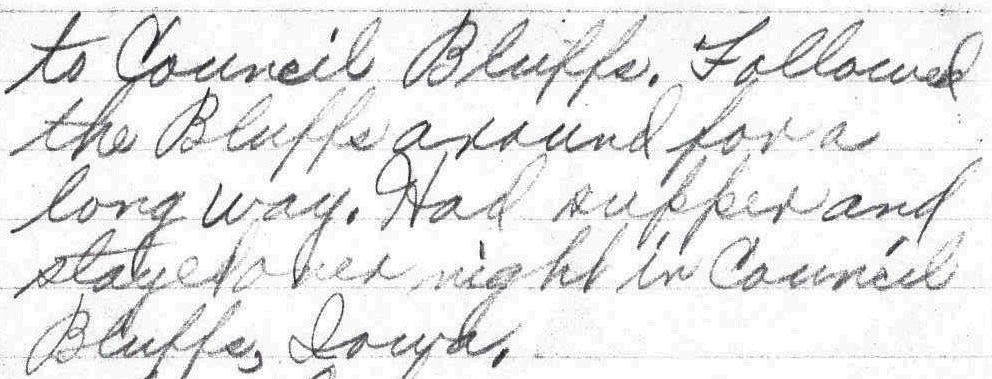 to Council Bluffs. Followed
the Bluffs around for a
long way. Had supper and
stayed over night in Council
Bluffs, Iowa.